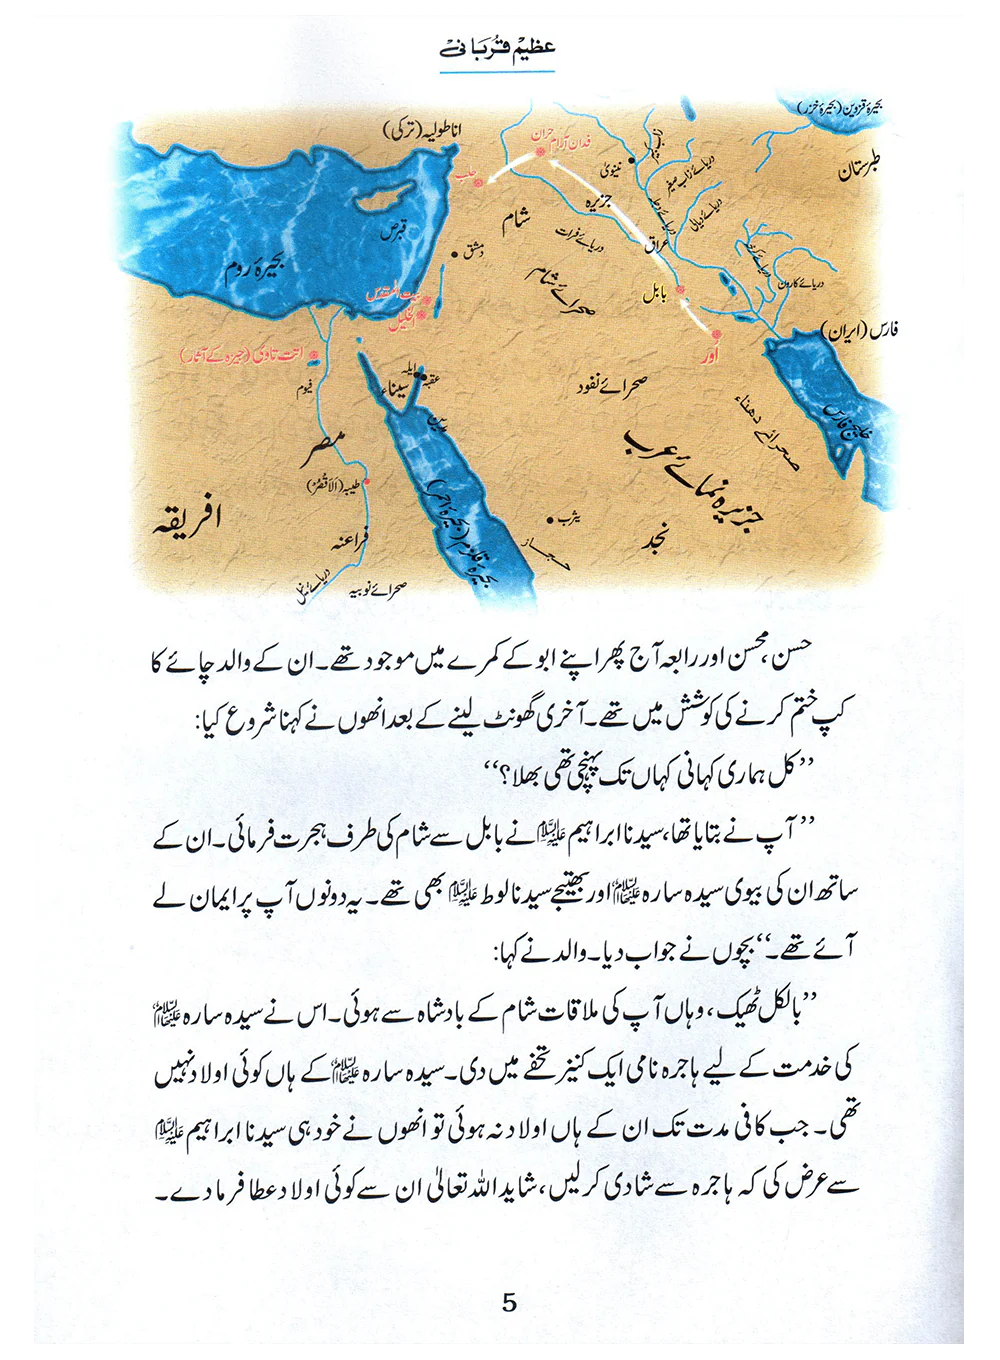 عظیم قربانی
بحیرۂ قزوین (بحیرۂ خزر)
اناطولیہ (ترکی)
حران
فدان آرام
طبرستان
نینویٰ
دریائے زاب صغیر
حلب
جزیرہ
دریائے دجلہ
دریائے دیالی
شام
قبرص
دریائے فرات
عراق
دمشق
بحیرۂ روم
دریائے کرخہ
صحرائے شام
دریائے کارون
بابل
بیت المقدس
الخلیل
فارس (ایران)
اور
اتت تاوی (جیزہ کے آثار)
ایلہ
عقبہ
سیناء
فیوم
صحرائے نفود
صحرائے دھناء
خلیج فارس
مدین
مصر
جزیرہ نمائے عرب
طیبہ (الاقصر)
بحیرۂ قلزم (بحیرۂ احمر)
افریقہ
یثرب
نجد
حجاز
فراعنہ
دریائے نیل
صحرائے نوبیہ
حسن، محسن اور رابعہ آج پھر اپنے ابو کے کمرے میں موجود تھے۔ ان کے والد چائے کا
کپ ختم کرنے کی کوشش میں تھے۔ آخری گھونٹ لینے کے بعد انھوں نے کہنا شروع کیا:
’’کل ہماری کہانی کہاں تک پہنچی تھی بھلا؟‘‘
’’آپ نے بتایا تھا، سیدنا ابراہیم علیہ السلام نے بابل سے شام کی طرف ہجرت فرمائی۔ ان کے
ساتھ ان کی بیوی سیدہ سارہ علیہا السلام اور بھتیجے سیدنا لوط علیہ السلام بھی تھے۔ یہ دونوں آپ پر ایمان لے
آئے تھے۔‘‘ بچوں نے جواب دیا۔ والد نے کہا:
’’بالکل ٹھیک، وہاں آپ کی ملاقات شام کے بادشاہ سے ہوئی۔ اس نے سیدہ سارہ علیہا السلام
کی خدمت کے لیے ہاجرہ نامی ایک کنیز تحفے میں دی۔ سیدہ سارہ علیہا السلام کے ہاں کوئی اولاد نہیں
تھی۔ جب کافی مدت تک ان کے ہاں اولاد نہ ہوئی تو انھوں نے خود ہی سیدنا ابراہیم علیہ السلام
سے عرض کی کہ ہاجرہ سے شادی کر لیں، شاید اللہ تعالیٰ ان سے کوئی اولاد عطا فرما دے۔
5